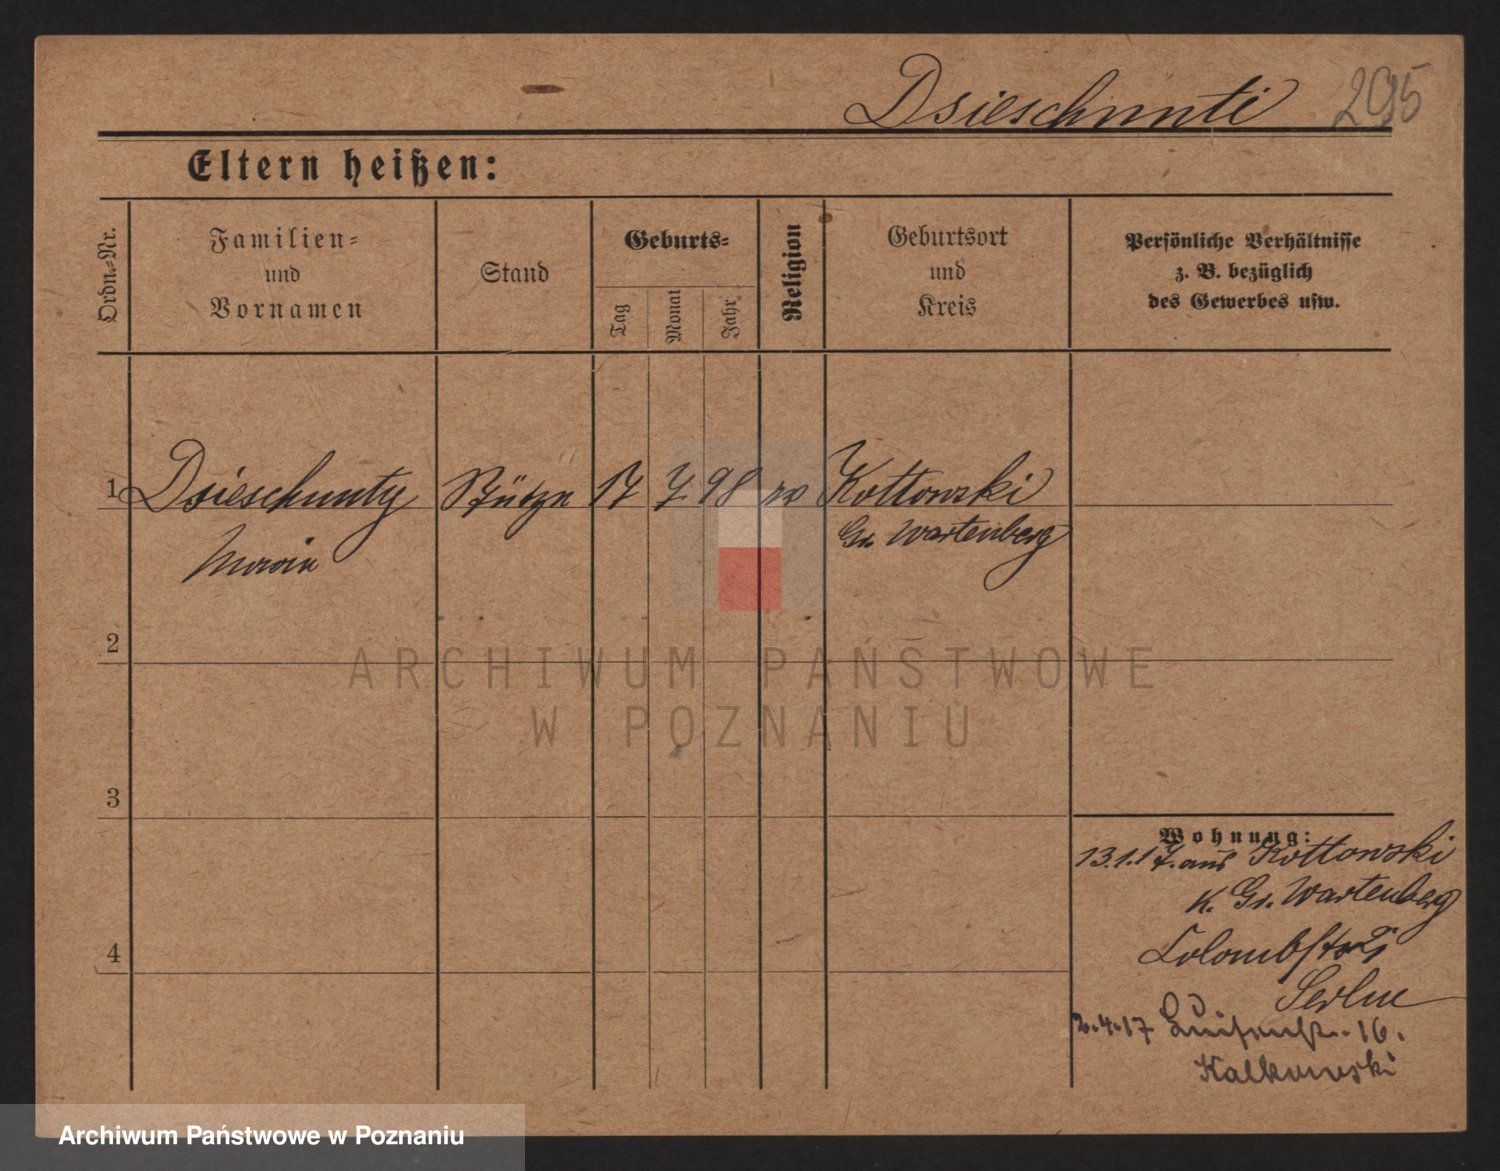 Dsieschunti 295
Eltern heißen:
Ordn.-Nr.
Familien-
und
Vornamen
Stand
Geburts-
Tag
Monat
Jahr
Religion
Geburtsort
und
Kreis
Persönliche Verhältnisse
z. B. bezüglich
des Gewerbes usw.
1 Dsieschunty Stütze 17 7 98 Kottowski
Gr. Wartenberg
Maria
2
ARCHIWUM PAŃSTWOWE
W POZNANIU
3
Wohnung:
13.1.17. aus Kottowski
K. Gr. Wartenberg
4
Colombstr
2.4.17 Luisenstr. 16.
Kalkowski
Archiwum Państwowe w Poznaniu